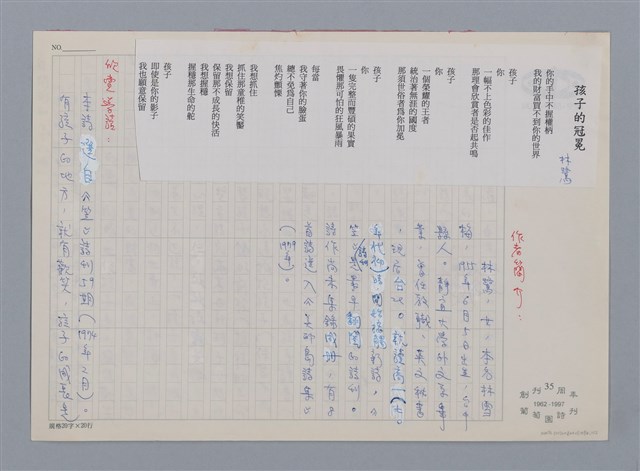 NO
孩子的冠冕
林鷺
你的手中不握權柄
我的財富買不到你的世界
孩子
你
一幅不上色彩的佳作
那理會欣賞者是否起共鳴
孩子
你
一個榮耀的王者
統治著無涯的國度
那須世俗者為你加冕
孩子
你
一隻完整而豐碩的果實
畏懼那可怕的狂風暴雨
每當
我守著你的臉蛋
總不免為自己
焦灼顫慄
我想抓住
抓住那童稚的笑靨
我想保留
保留那不成長的快活
我想握穩
握穩那生命的舵
孩子
即使是你的影子
我也願意保留
作者簡介:
林鷺,女,本名林雪
梅,1955年6月5日生,台中
縣人。靜宜大學外文系畢
業,曾任教職,英文秘書
,現居台北。就讀高
年代
笠
詩作尚未集錄成冊,有
首詩選入
(1979年)。
欣賞導讀:
本詩選自《笠》詩刊59期(1974年2月)。
有孩子的地方,就有歡笑,孩子的成長是
創刊35周年
1962-1997
葡萄園詩刊
規格20字×20行